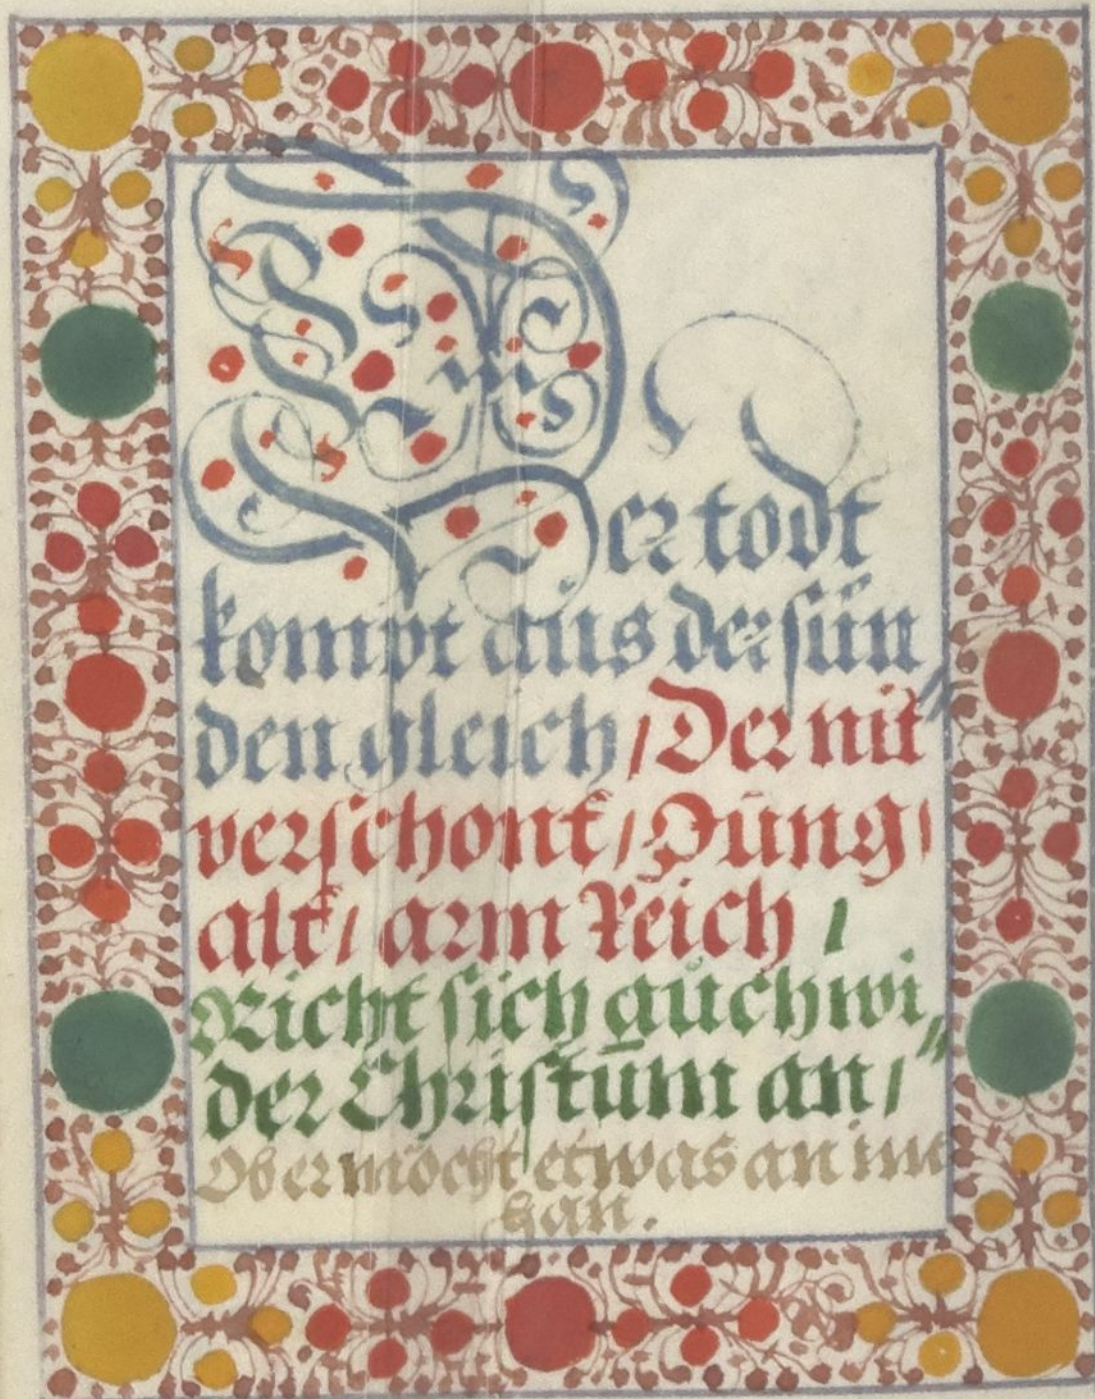 Der todt
kompt aus der sün„
den gleich / Der nit
verschont / Jung /
alt / arm Reich /
Richt sich auch wi„
der Christum an /
Ob er möcht etwas an im
han.